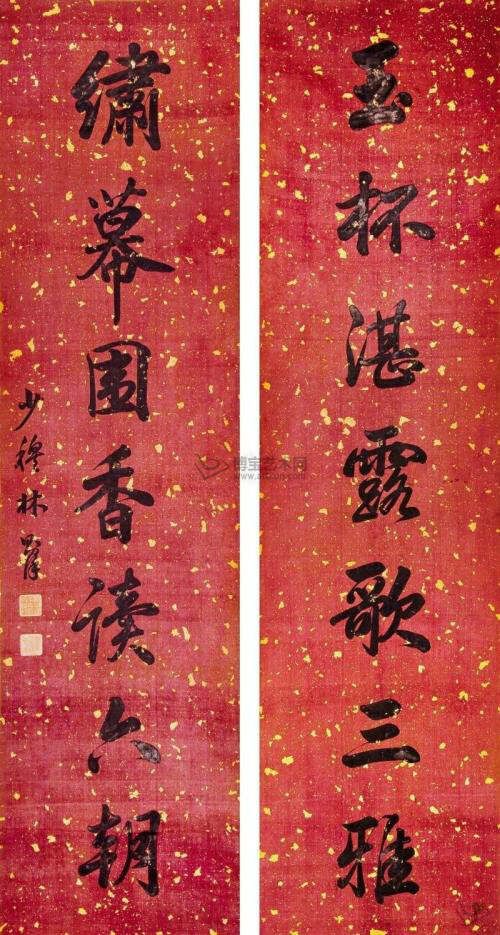 玉杯湛露歌三雅
繡幕围香读六朝
少穆林則徐
博宝艺术网